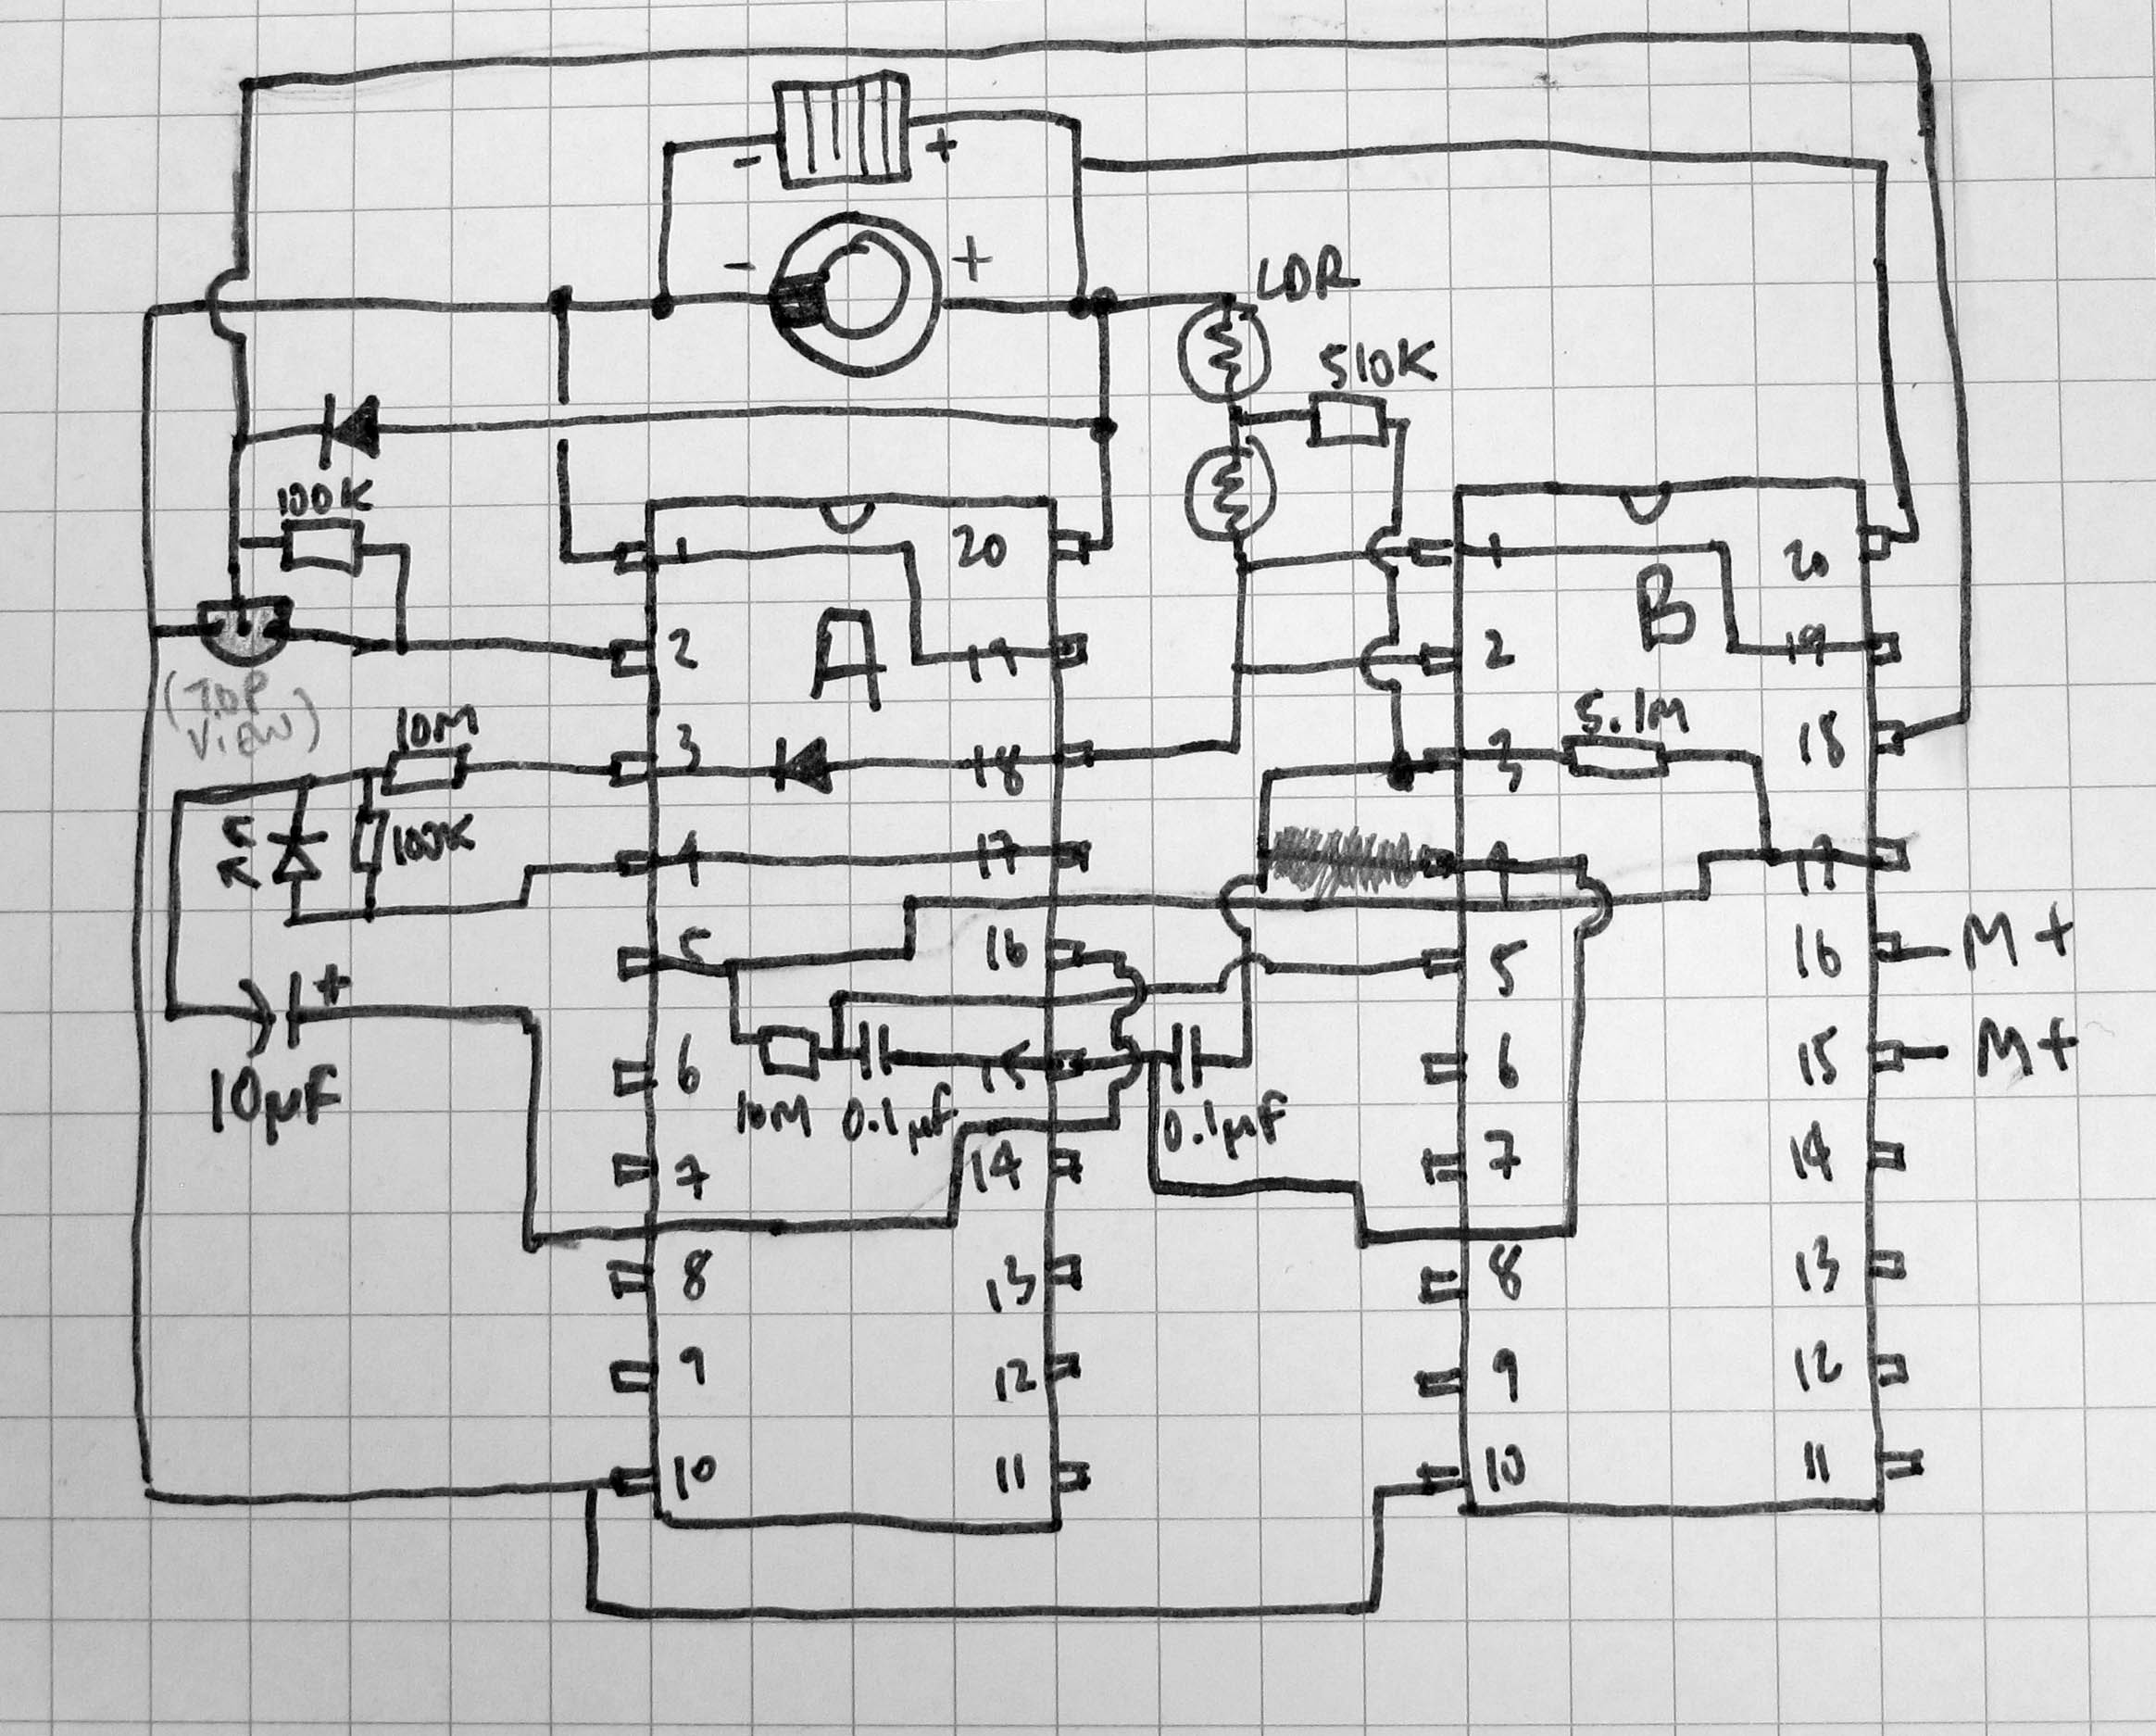 - +
- +
LDR
510K
100K
1 20
1 20
A
B
2 19
2 19
(TOP
VIEW)
10M
3 18
5.1M
3 18
100K
4 17
4 17
5 16
5 16 M+
+
10µF
6 15
6 15 M+
10M 0.1µF
0.1µF
7 14
7 14
8 13
8 13
9 12
9 12
10 11
10 11